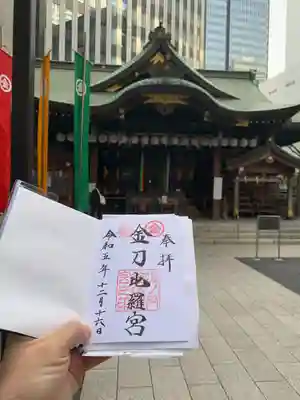 奉拝
金刀比羅宮
令和五年十二月十六日